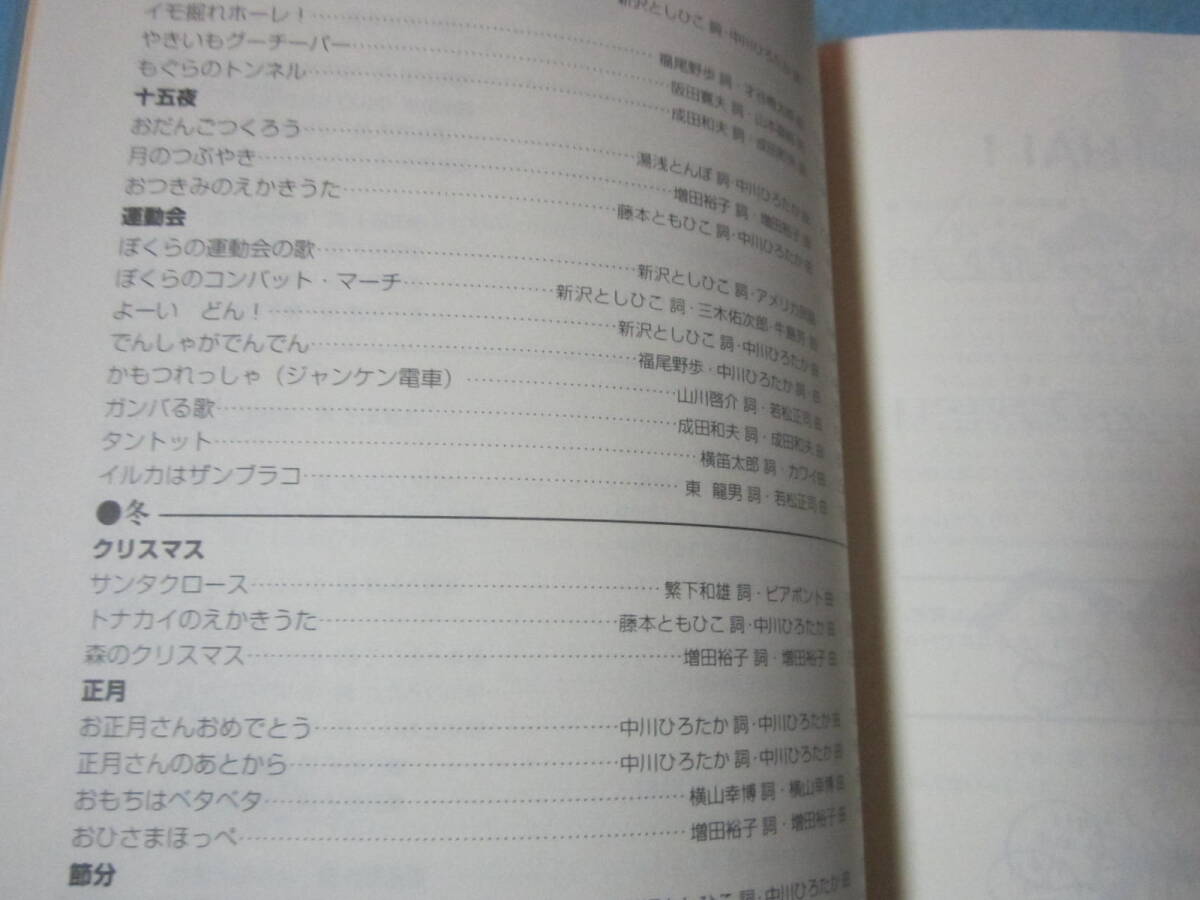 新沢としひこ 詞・中川ひろたか 曲
イモ掘れホーレ！……福尾野歩 詞
やきいもグーチーパー……阪田寛夫 詞・山本直純 曲
もぐらのトンネル……成田和夫 詞・成田和夫 曲
十五夜
おだんごつくろう……湯浅とんぼ 詞・中川ひろたか 曲
月のつぶやき……増田裕子 詞・増田裕子 曲
おつきみのえかきうた……藤本ともひこ 詞・中川ひろたか 曲
運動会
ぼくらの運動会の歌……新沢としひこ 詞・アメリカ民謡
ぼくらのコンバット・マーチ……新沢としひこ 詞・三木佑次郎・牛島芳 曲
よーい どん！……新沢としひこ 詞・中川ひろたか 曲
でんしゃがでんでん……福尾野歩・中川ひろたか 詞・曲
かもつれっしゃ（ジャンケン電車）……山川啓介 詞・若松正司 曲
ガンバる歌……成田和夫 詞・成田和夫 曲
タントット……横笛太郎 詞・カワイ 曲
イルカはザンブラコ……東 龍男 詞・若松正司 曲
●冬
クリスマス
サンタクロース……繁下和雄 詞・ピアポント 曲
トナカイのえかきうた……藤本ともひこ 詞・中川ひろたか 曲
森のクリスマス……増田裕子 詞・増田裕子 曲
正月
お正月さんおめでとう……中川ひろたか 詞・中川ひろたか 曲
正月さんのあとから……中川ひろたか 詞・中川ひろたか 曲
おもちはベタベタ……横山幸博 詞・横山幸博 曲
おひさまほっぺ……増田裕子 詞・増田裕子 曲
節分
としひこ 詞・中川ひろたか 曲